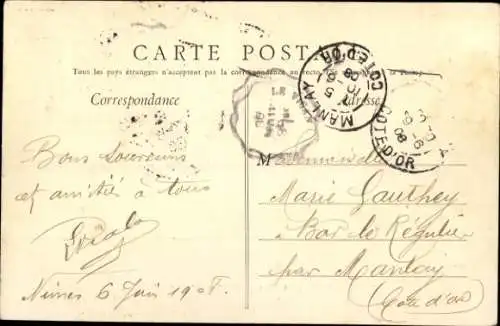 CARTE POSTALE
Tous les pays étrangers n'acceptent pas la correspondance au recto
Correspondance
Adresse
MANLAY
COTE D'OR
COTE-D'OR
Bons souvenirs
et amitiés à tous
Nîmes 6 Juin 1908.
Mademoiselle
Marie Gauthey
Bar le Régulier
par Manlay
Côte d'or